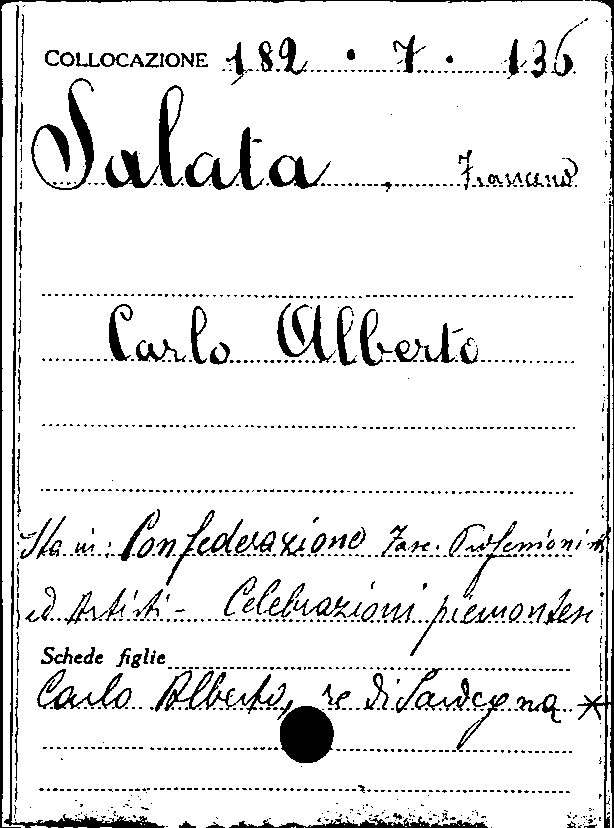 COLLOCAZIONE 182 . 7 . 136
Salata, Francesco
Carlo Alberto
Sta in: Confederazione Fasc. Professionisti
ed Artisti - Celebrazioni piemontesi
Schede figlie
Carlo Alberto, re di Sardegna *